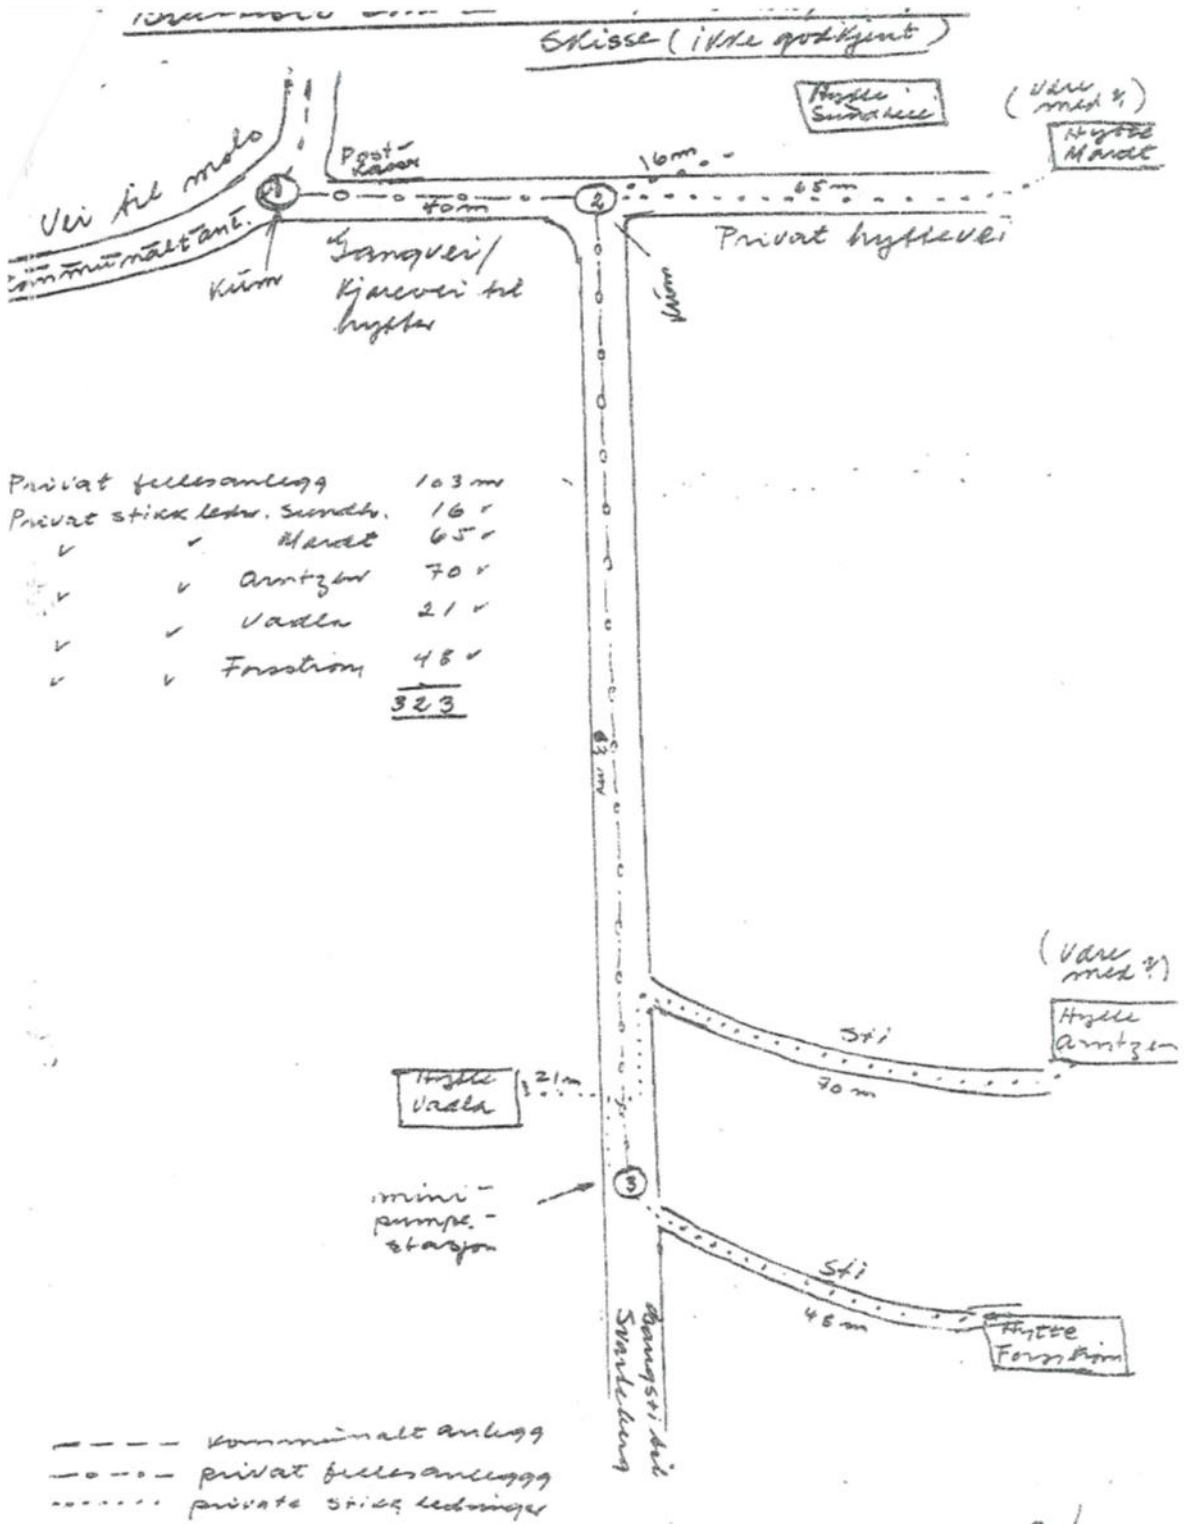 Skisse (ikke godkjent)
Hytte
Sundh
(være
med ?)
Hytte
Mardt
Vei til molo
Kommunalt anl.
Post-
kasser
16m
1
40m
2
65m
Kum
Gangvei/
Kjørevei til
hytter
Kum
Privat hyttevei
Privat fellesanlegg 103 m
Privat stikkledn. Sundh. 16 "
" " Mardt 65 "
" " Arntzen 70 "
" " Vadla 21 "
" " Forsström 48 "
323
63 m
(være
med ?)
Hytte
Arntzen
Sti
70 m
Hytte
Vadla
21m
mini-
pumpe-
stasjon
3
Sti
48 m
Hytte
Forsström
Gangsti til
Svarteberg
kommunalt anlegg
privat fellesanleggg
private stikkledninger